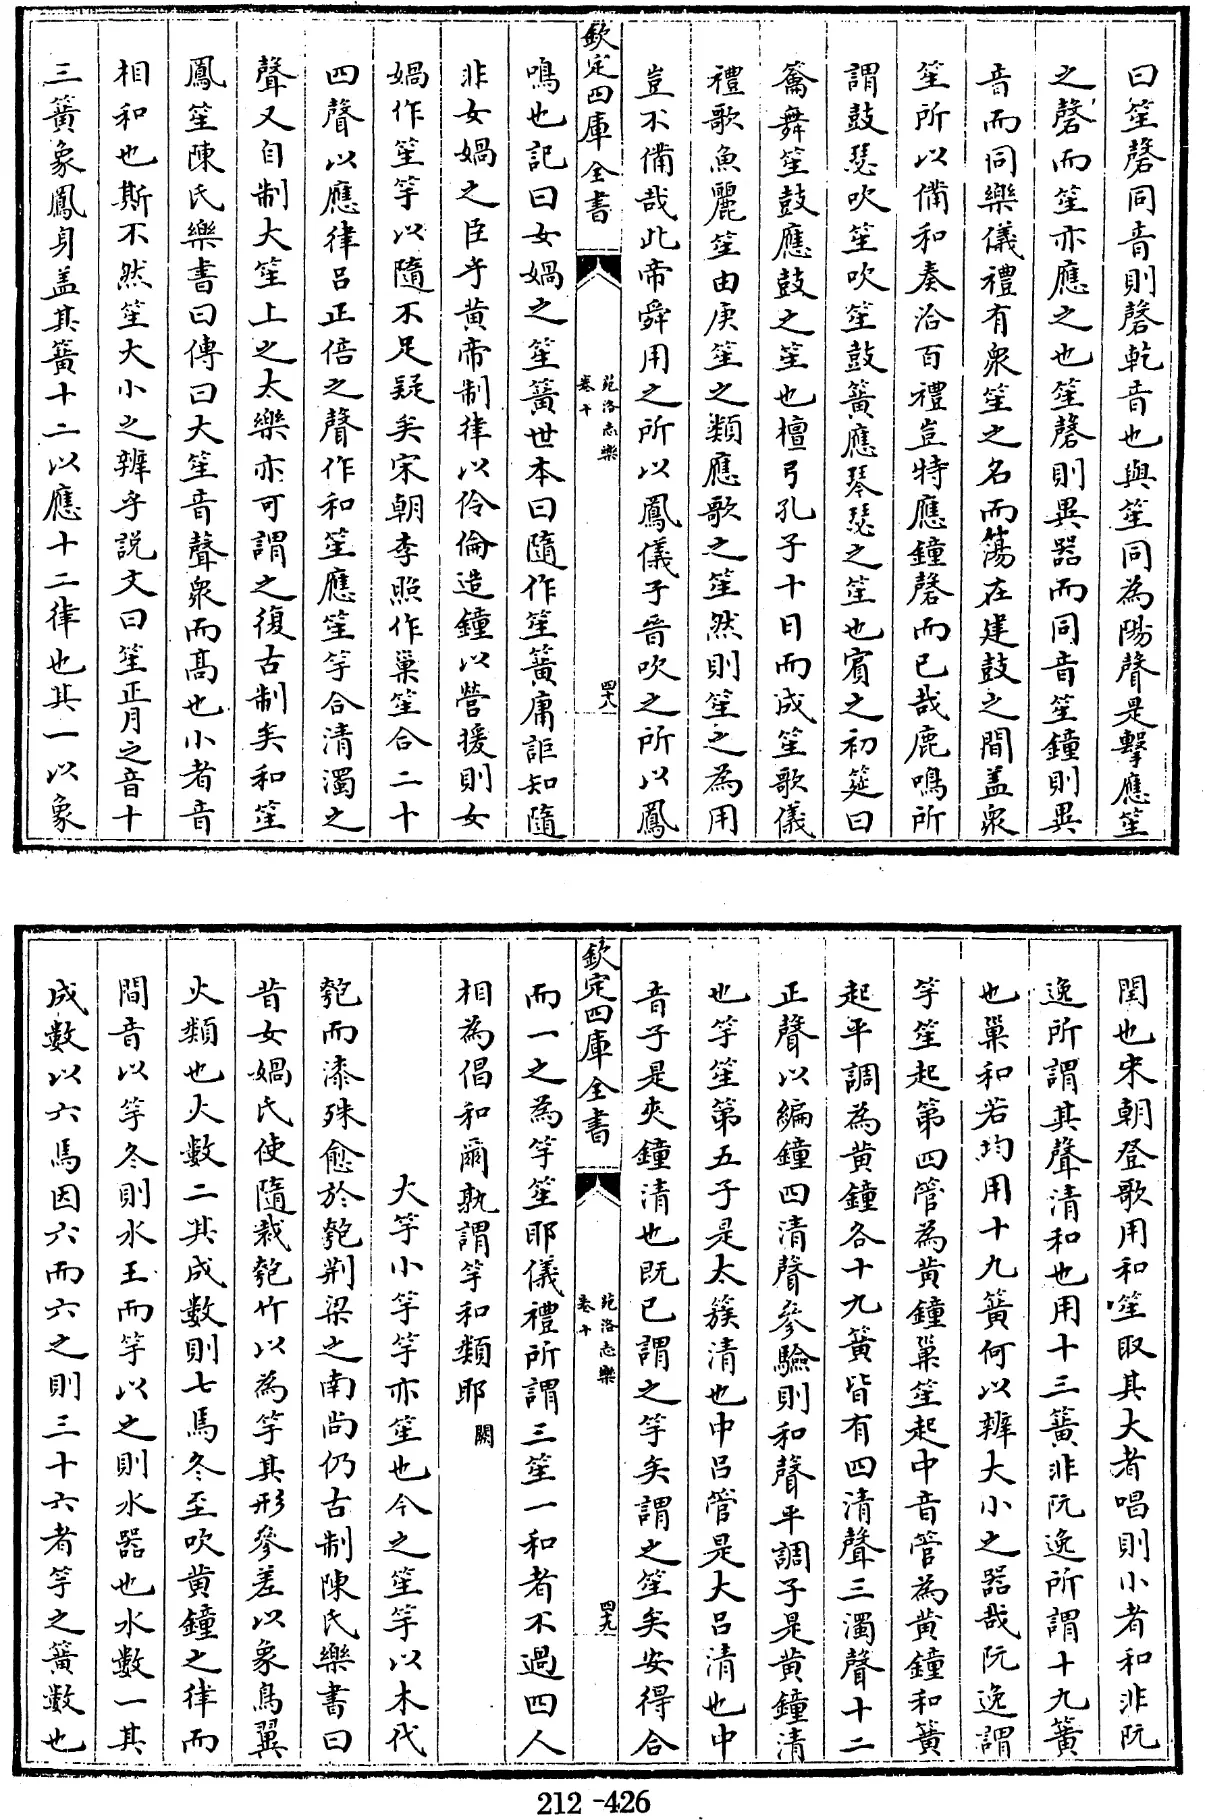 曰笙磬同音則磬乾音也與笙同為陽聲是擊應笙
之磬而笙亦應之也笙磬則異器而同音笙鐘則異
音而同樂儀禮有衆笙之名而簜在建鼓之間盖衆
笙所以備和奏洽百禮豈特應鐘磬而已哉鹿鳴所
謂鼓瑟吹笙吹笙鼓簧應琴瑟之笙也賓之初筵曰
籥舞笙鼓應鼓之笙也檀弓孔子十日而成笙歌儀
禮歌魚麗笙由庚笙之類應歌之笙然則笙之為用
豈不備哉此帝舜用之所以鳳儀子晉吹之所以鳳
欽定四庫全書
苑洛志樂
卷十
四十八
鳴也記曰女媧之笙簧世本曰隨作笙簧庸詎知隨
非女媧之臣乎黄帝制律以伶倫造鐘以營援則女
媧作笙竽以隨不足疑矣宋朝李照作巢笙合二十
四聲以應律吕正倍之聲作和笙應笙竽合清濁之
聲又自制大笙上之太樂亦可謂之復古制矣和笙
鳳笙陳氏樂書曰傳曰大笙音聲衆而髙也小者音
相和也斯不然笙大小之辨乎説文曰笙正月之音十
三簧象鳳身盖其簧十二以應十二律也其一以象
閏也宋朝登歌用和笙取其大者唱則小者和非阮
逸所謂其聲清和也用十三簧非阮逸所謂十九簧
也巢和若均用十九簧何以辨大小之器哉阮逸謂
竽笙起第四管為黄鐘巢笙起中音管為黄鐘和簧
起平調為黄鐘各十九簧皆有四清聲三濁聲十二
正聲以編鐘四清聲參驗則和聲平調子是黄鐘清
也竽笙第五子是太簇清也中吕管是大吕清也中
音子是夾鐘清也既已謂之竽矣謂之笙矣安得合
欽定四庫全書
苑洛志樂
卷十
四十九
而一之為竽笙耶儀禮所謂三笙一和者不過四人
相為倡和爾孰謂竽和類耶 闕
大竽小竽竽亦笙也今之笙竽以木代
匏而漆殊愈於匏荆梁之南尚仍古制陳氏樂書曰
昔女媧氏使隨裁匏竹以為竽其形參差以象鳥翼
火類也火數二其成數則七馬冬至吹黄鐘之律而
間音以竽冬則水王而竽以之則水器也水數一其
成數以六馬因六而六之則三十六者竽之簧數也
212-426